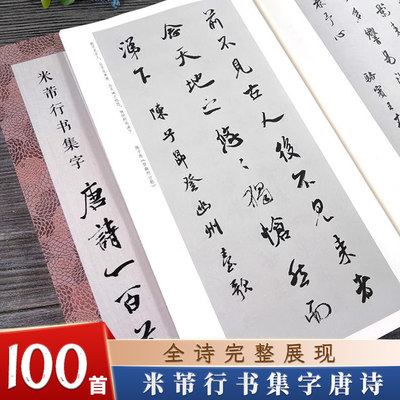 米芾行书集字
唐詩一百
前不見古人後不見来者
念天地之悠々獨愴然而
涕下 陳子昂登幽州臺歌
100首
全诗完整展现
米芾行书集字唐诗